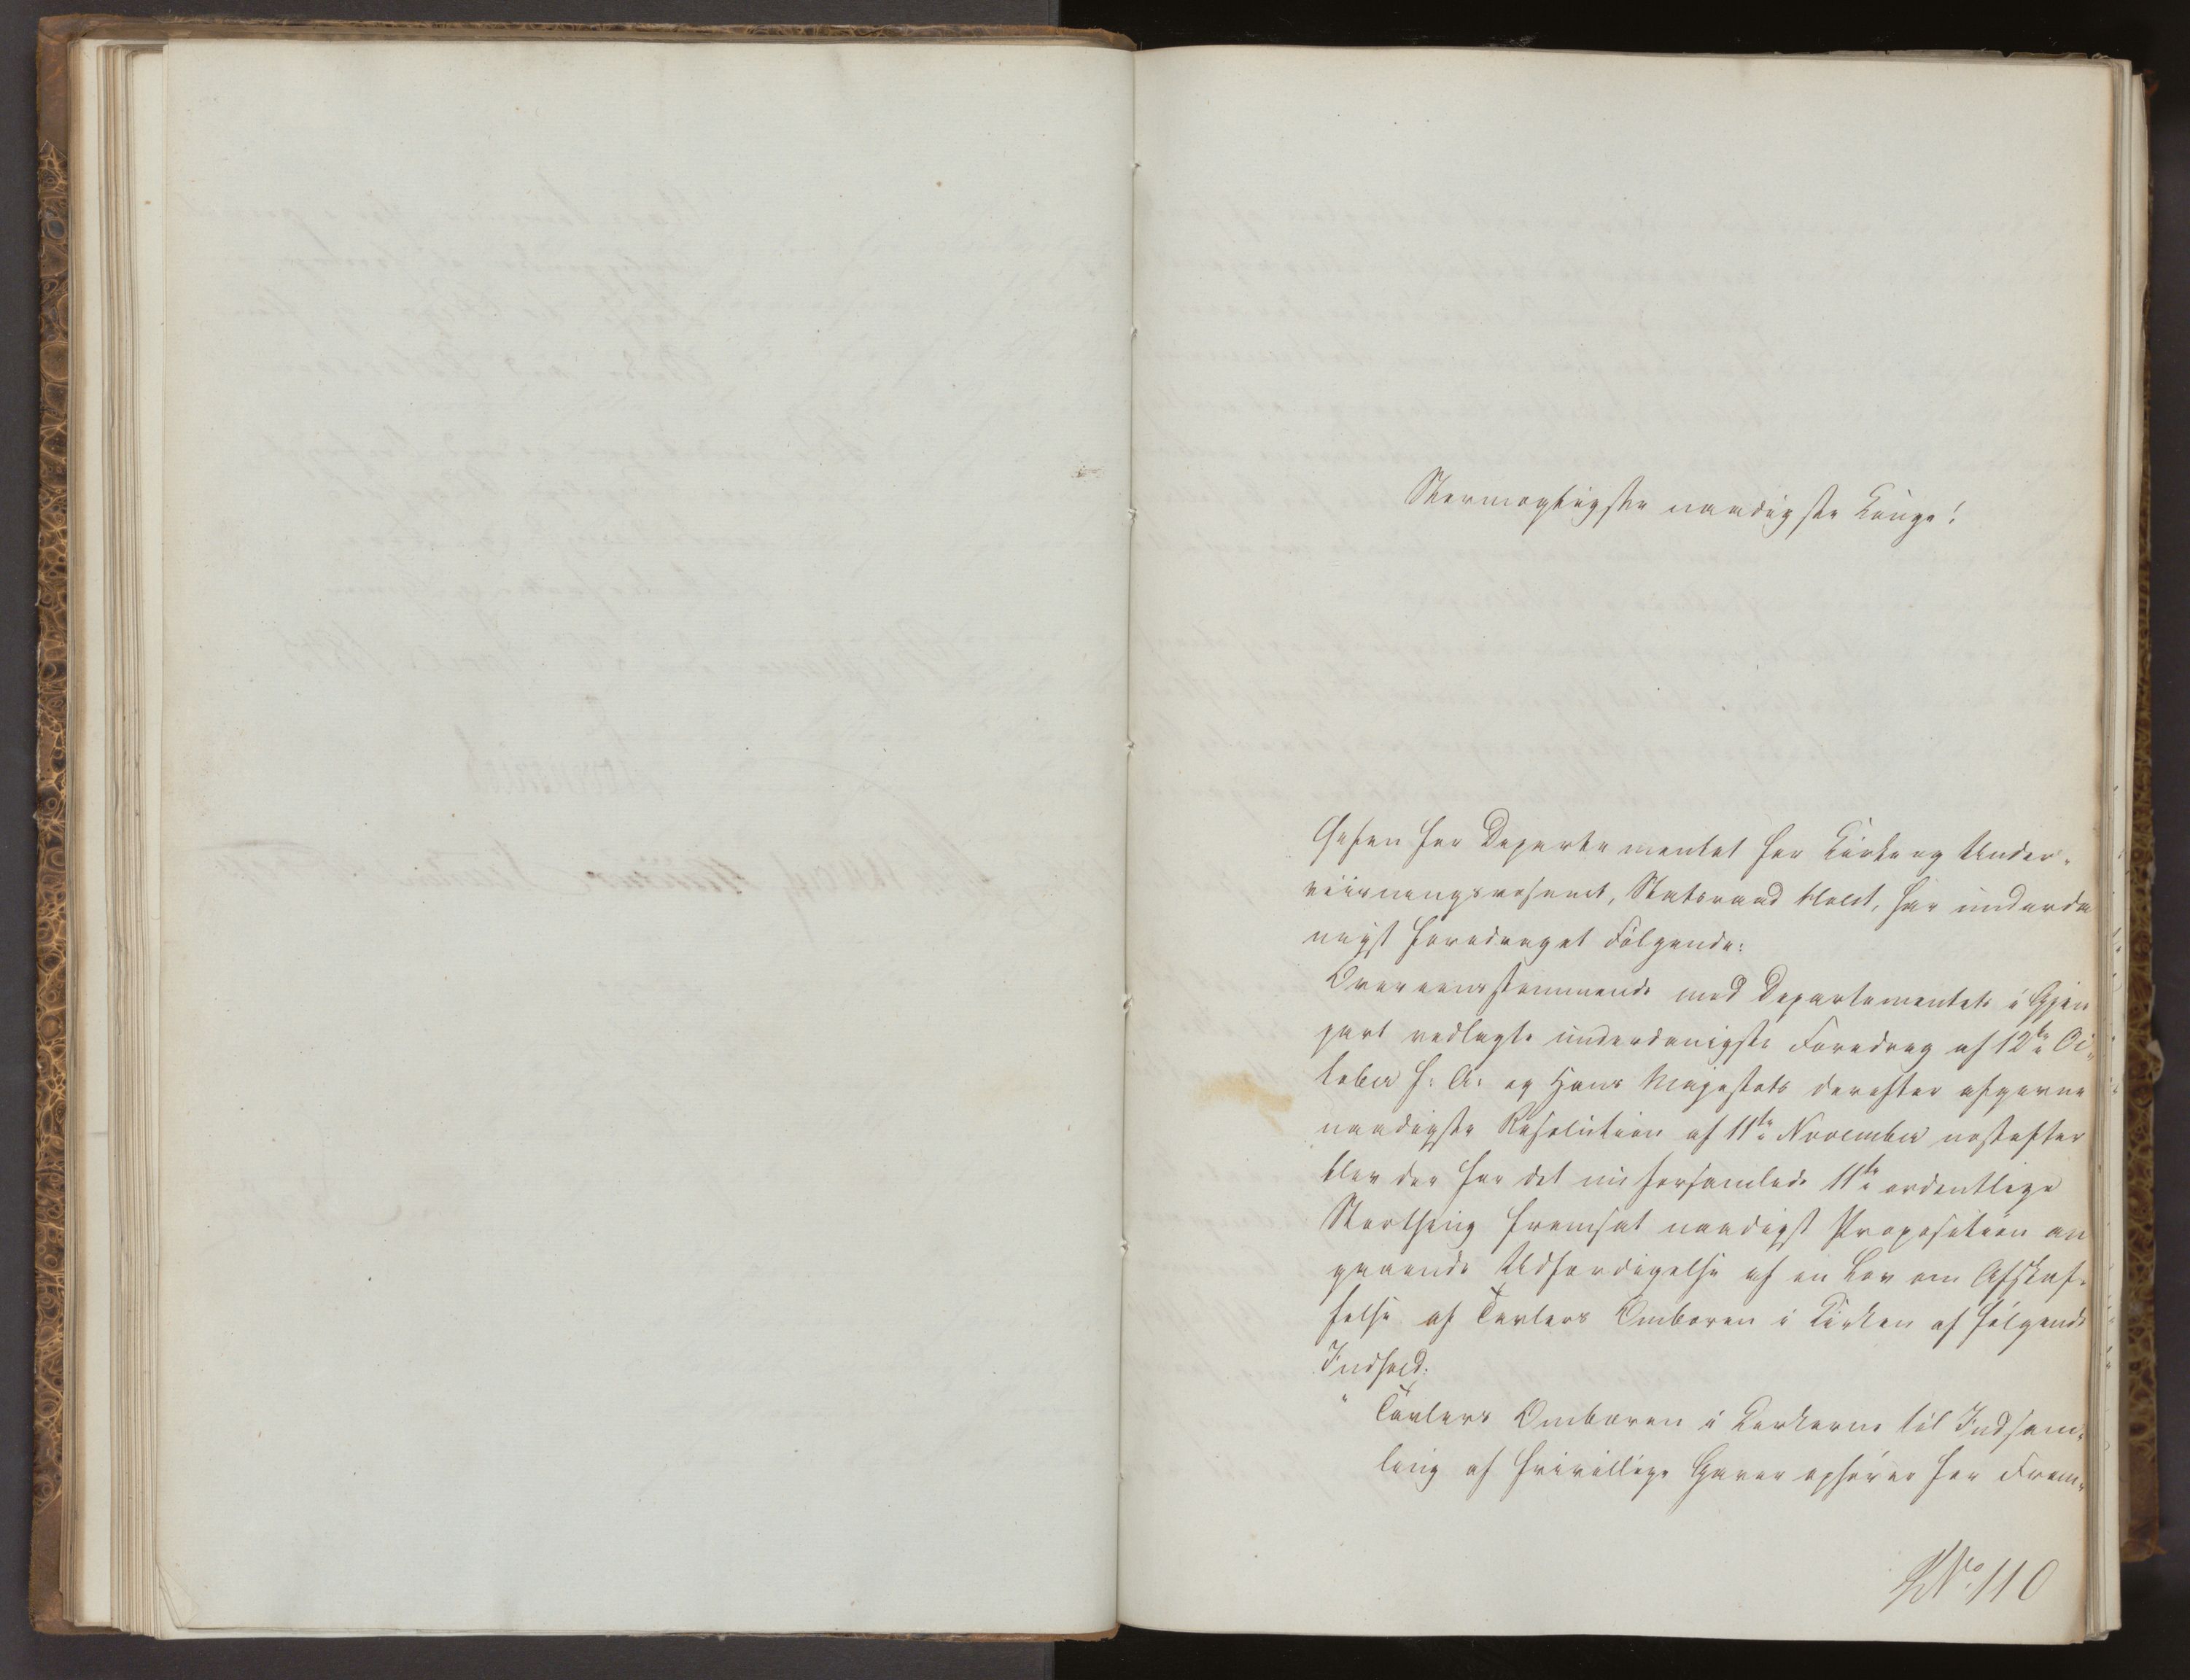 Stormægtigste naadigste Konge!
Chefen for Departementet for Kirke og Under-
viisningsvæsenet, Statsraad Holst, har underda
nigst foredraget Følgende:
Overeensstemmende med Departementets i Gjen
part vedlagte underdanigste Foredrag af 12te Oc-
tober f: A: og Hans Majestæts derefter afgivne
naadigste Resolution af 11te November næstefter
blev der for det nu forsamlede 11te ordentlige
Storthing fremsat naadigst Proposition an
gaaende Udfærdigelse af en Lov om Afskaf-
felse af Tavlers Ombæren i Kirken af følgende
Indhold:
" Tavlers Ombæren i Kirkerne til Indsam-
ling af frivillige Gaver ophører for Frem-
No 110